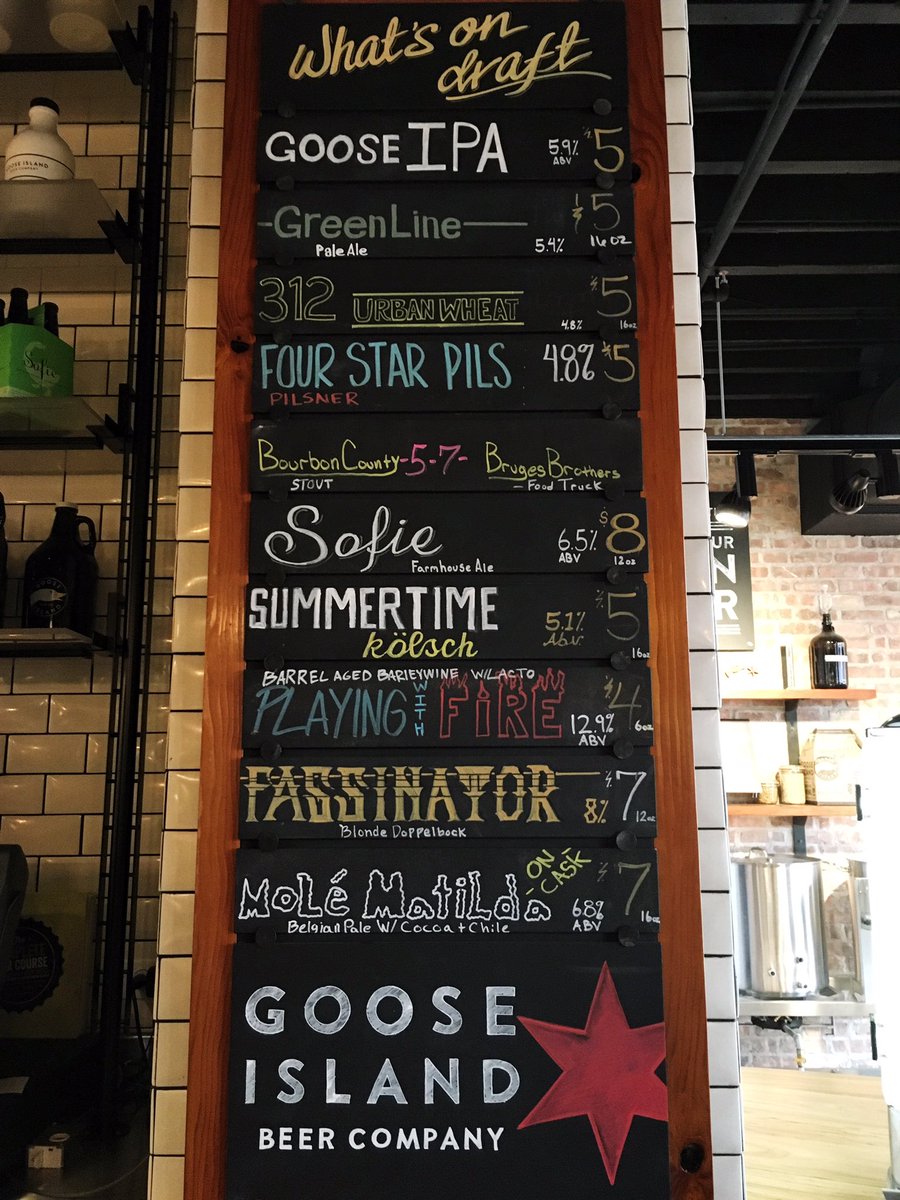 What's on
draft
GOOSE IPA 5.9% ABV $5
GreenLine $5
Pale Ale 5.4% 16oz
312 URBAN WHEAT $5
4.8% 16oz
FOUR STAR PILS 4.8% $5
PILSNER
Bourbon County -5-7- Bruges Brothers
STOUT - Food Truck
Sofie 6.5% ABV $8
Farmhouse Ale 12oz
SUMMERTIME 5.1% ABV. $5
kölsch 16oz
BARREL AGED BARLEYWINE W/LACTO
PLAYING WITH FIRE 12.9% ABV $4 6oz
FASSINATOR 8% $7 12oz
Blonde Doppelbock
ON CASK
Molé Matilda 6.8% ABV $7 16oz
Belgian Pale W/ Cocoa + Chile
GOOSE
ISLAND
BEER COMPANY
GOOSE ISLAND
Sofie